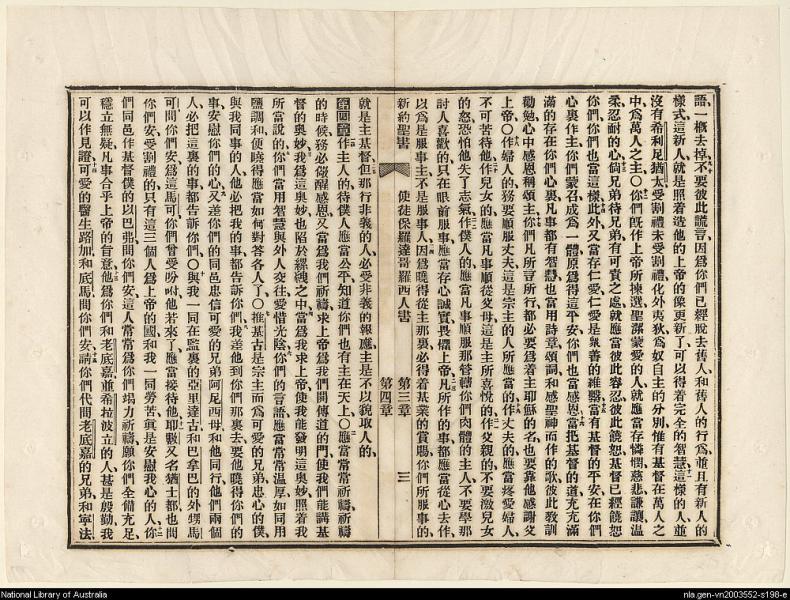 語、一概去掉、不要彼此謊言、因爲你們已經脫去舊人、和舊人的行爲、並且有新人的
樣式、這新人就是照着造他的上帝的像更新了、可以得着完全的智慧、這樣的人、並
沒有希利尼猶太、受割禮、未受割禮、化外夷狄、爲奴自主的分別、惟有基督在萬人之
中、爲萬人之主〇你們旣作上帝所揀選聖潔蒙愛的人、就應當存憐憫慈悲謙讓溫
柔忍耐的心、倘兄弟待兄弟有可責之處、就應當彼此容忍、彼此饒恕、基督已經饒恕
你們、你們也當這樣、此外又當存仁愛、仁愛是衆善的維繫、當有基督的平安在你們
心裏作主、你們蒙召成爲一體、原爲得這平安、你們也當感恩、當把基督的道、充充滿
滿的存在你們心裏、凡事都有智慧、也當用詩章頌詞、和感聖神而作的歌、彼此敎訓
勸勉、心中感恩稱頌主、你們凡所言所行、都必要爲着主耶穌的名、也要靠他感謝父
上帝〇作婦人的、務要順服丈夫、這是宗主的人所應當的、作丈夫的、應當疼愛婦人、
不可苦待他、作兒女的、應當凡事順從父母、這是主所喜悅的、作父親的、不要激兒女
的怒、恐怕他失了志氣、作僕人的、應當凡事順服那管轄你們肉體的主人、不要學那
討人喜歡的、只在眼前服事、應當存心誠實、畏懼上帝、凡所作的事、都應當從心去作、
以爲是服事主、不是服事人、因爲曉得從主那裏、必得着基業的賞賜、你們所服事的、
新約聖書 使徒保羅達哥羅西人書 第三章 第四章 三
就是主基督、但那行非義的人、必受非義的報應、主是不以貌取人的、
第四章作主人的、待僕人應當公平、知道你們也有主在天上〇應當常常祈禱、祈禱
的時候、務必儆醒感恩、又當爲我們祈禱、求上帝爲我們開傳道的門、使我們能講基
督的奧妙、我爲這奧妙、也陷於縲絏之中、當爲我求上帝、使我能發明這奧妙、照着我
所當說的、你們當用智慧與外人交往、愛惜光陰、你們的言語、應當常常溫厚、如同用
鹽調和、便曉得應當如何對答各人了〇推基古是宗主而爲可愛的兄弟、忠心的僕、
與我同事的人、他必把我的事都告訴你們、我差他到你們那裏去、要他曉得你們的
事、安慰你們的心、又差你們的同邑、忠信可愛的兄弟阿尼西母、和他同行、他們兩個
人、必把這裏的事都告訴你們〇與我一同在監裏的亞里達古、和巴拿巴的外甥馬
可、問你們安、爲這馬可、你們曾受吩咐、他若來了、應當接待他、耶數又名猶士都、也問
你們安、受割禮的、只有這三個人、爲上帝的國、和我一同勞苦、眞是安慰我心的人、你
們同邑、作基督僕的以巴弗、問你們安、這人常常爲你們竭力祈禱、願你們全備充足、
穩立無疑、凡事合乎上帝的旨意、他爲你們、和老底嘉、並希拉波立的人、甚是殷勤、我
可以作見證、可愛的醫生路加、和底馬、問你們安、請你們代問老底嘉的兄弟、和寧法
National Library of Australia
nla.gen-vn2003552-s198-e